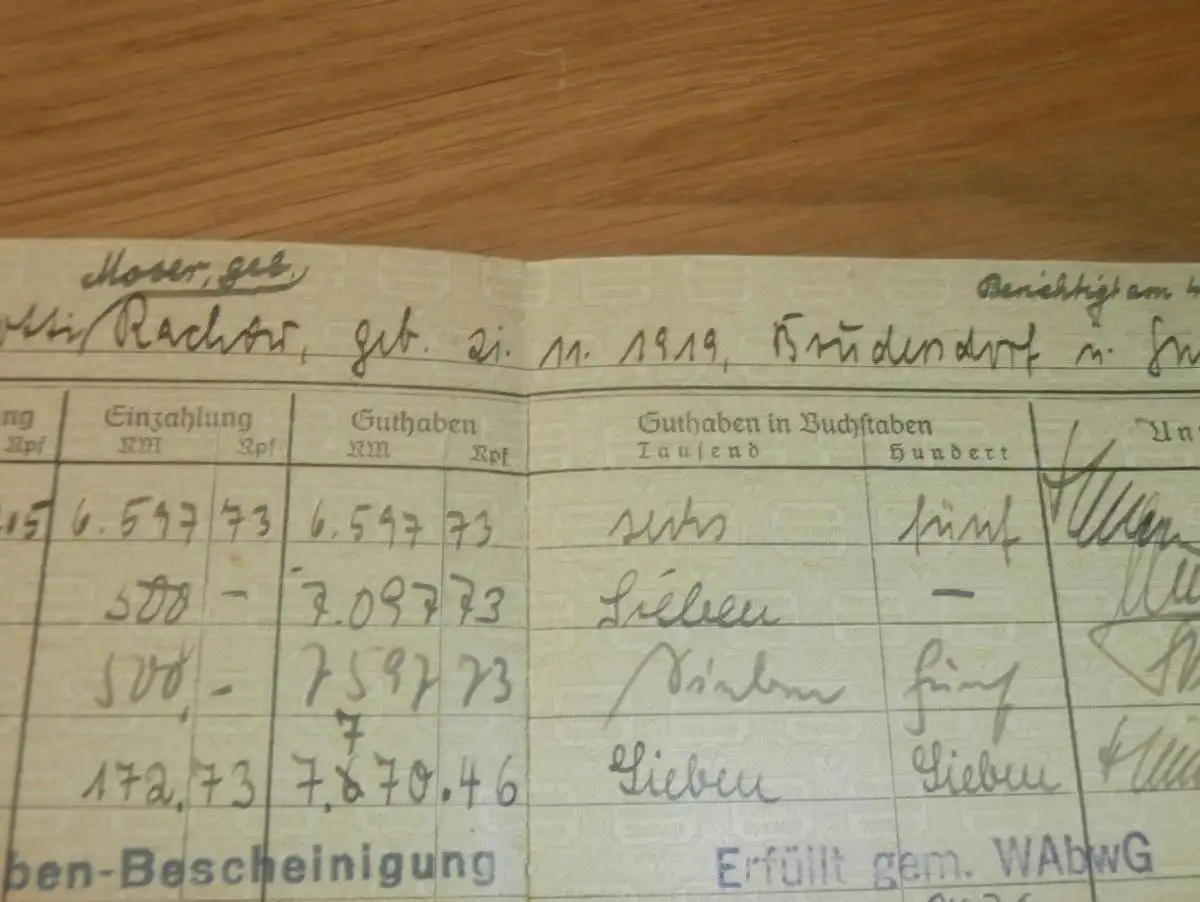 Moser, geb.
Berichtigt am
Rachow, geb. 21. 11. 1919, Brüdendorf u.
ng Einzahlung Guthaben Guthaben in Buchstaben Un
Rpf RM Rpf RM Rpf Tausend Hundert
05 6.597 73 6.597 73 sechs fünf
500 - 7.097 73 Sieben —
500,- 7597 73 Sieben fünf
7
172,73 7.670.46 Sieben Sieben
ben-Bescheinigung Erfüllt gem. WAbwG